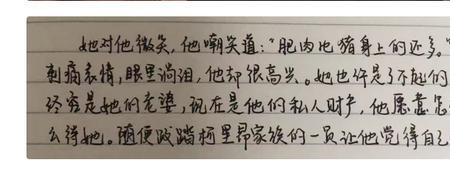 她对他微笑，他嘲笑道：“肥肉比猪身上的还多。”
刺痛表情，眼里淌泪，他却很高兴。她也许是了不起的
终究是她们的老婆，现在是他们的私人财产，他愿意怎
么待她。随便践踏柯里昂家族的一员让他觉得自己